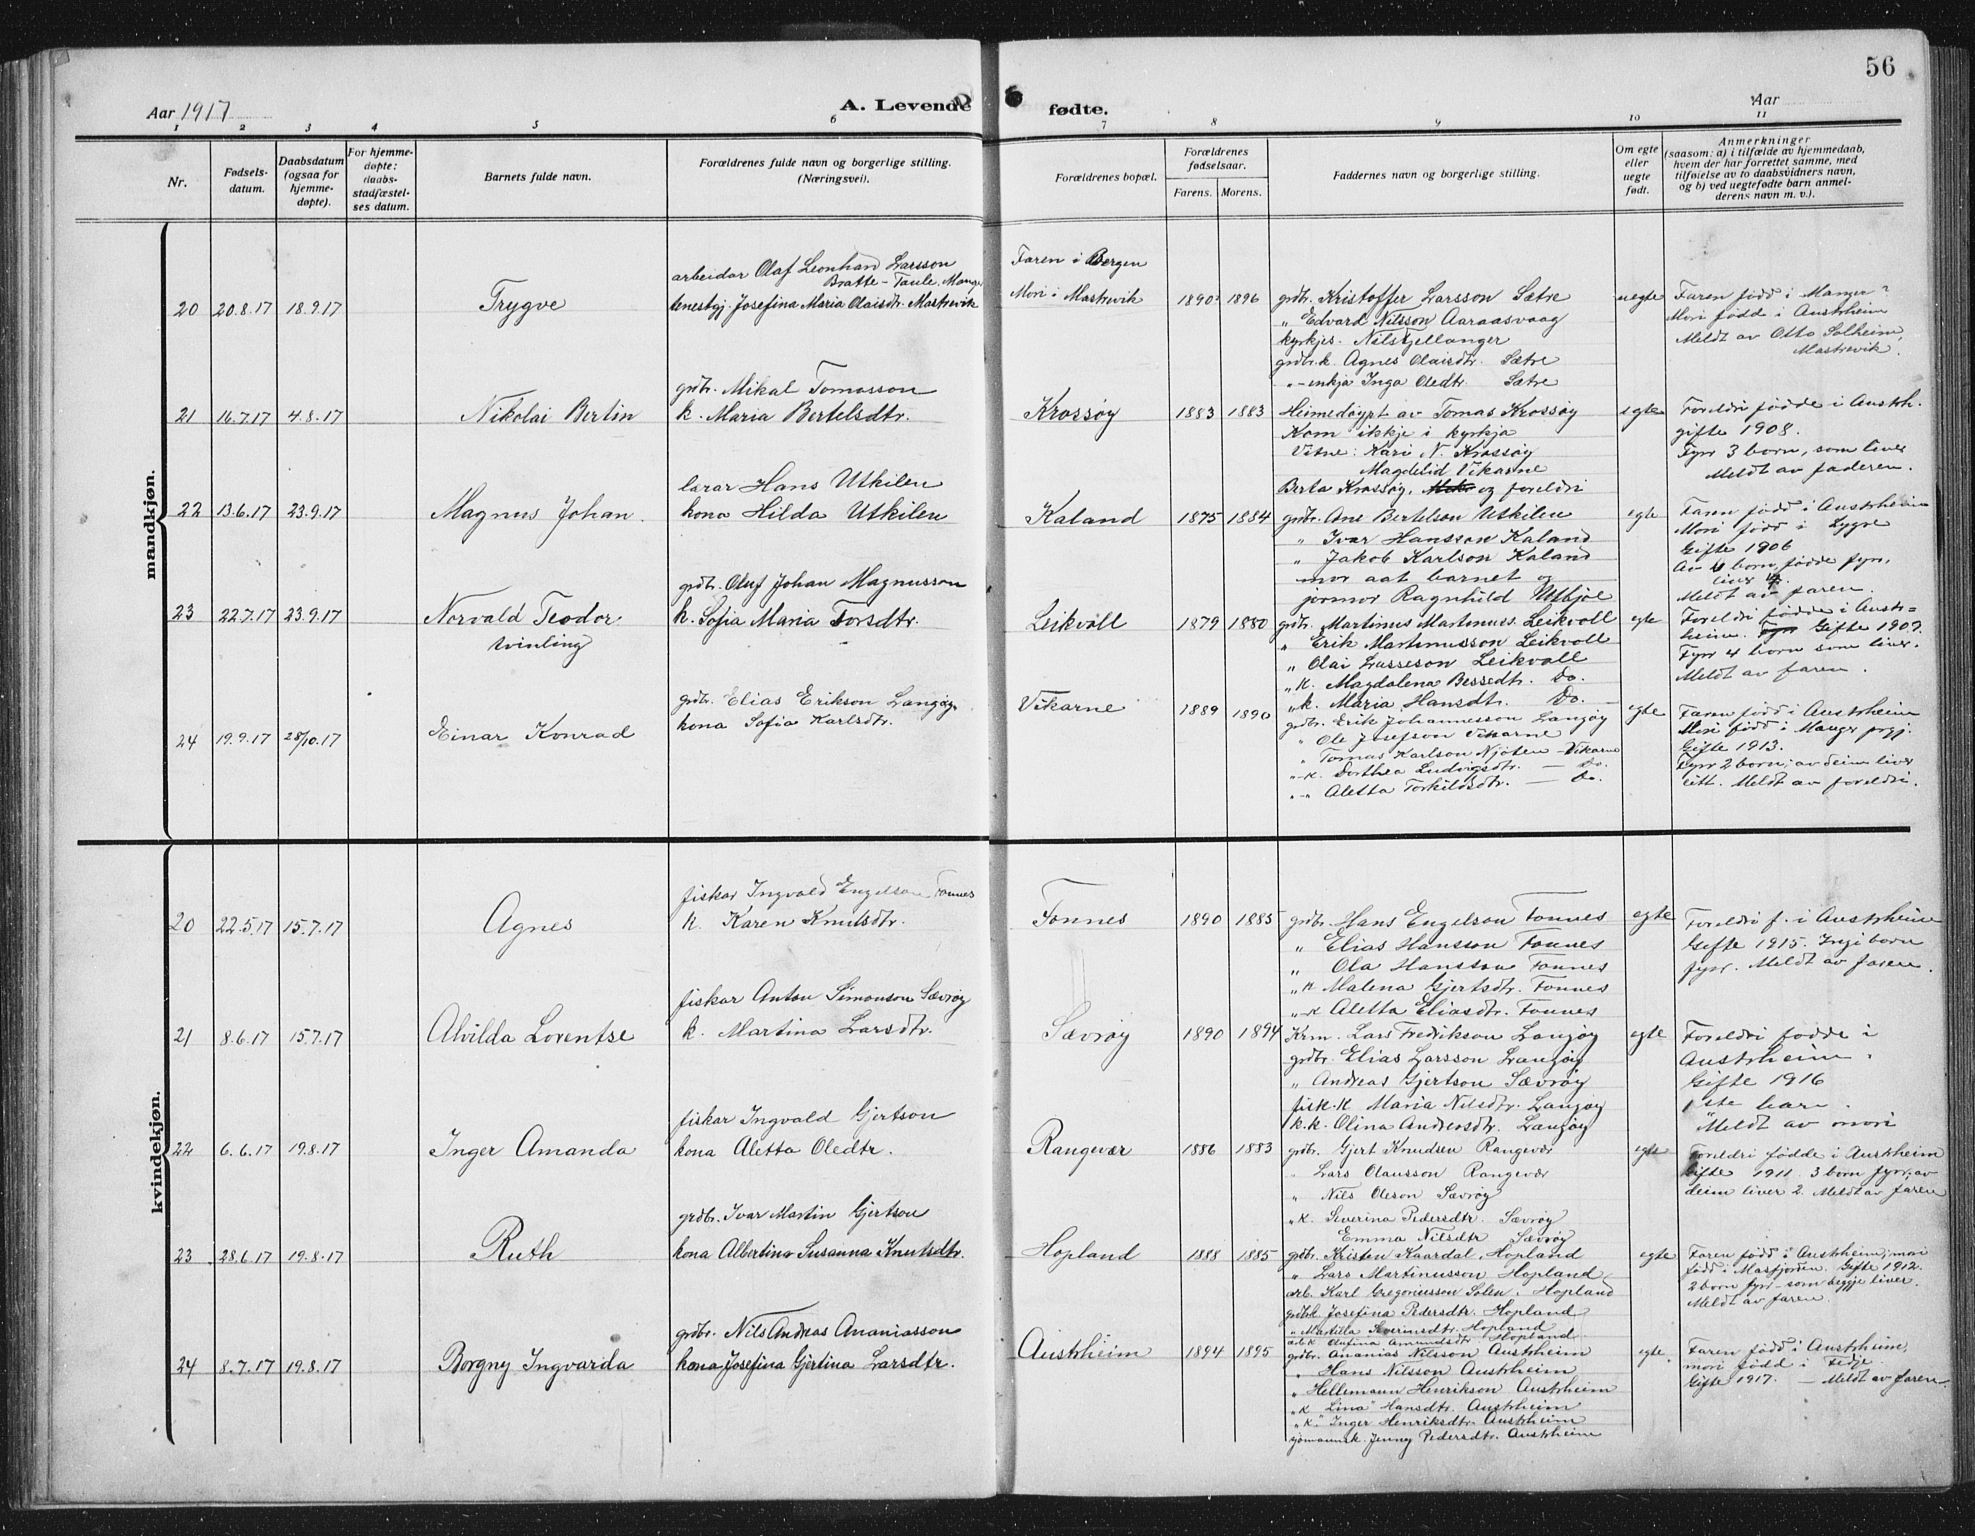 56
Aar 1917
A. Levende fødte.
Aar
1 2 3 4 5 6 7 8 9 10 11
Nr.
Fødsels-
datum.
Daabsdatum
(ogsaa for
hjemme-
døpte).
For hjemme-
døpte:
daabs-
stadfæstel-
ses datum.
Barnets fulde navn.
Forældrenes fulde navn og borgerlige stilling.
(Næringsvei).
Forældrenes bopæl.
Forældrenes
fødselsaar.
Farens. Morens.
Faddernes navn og borgerlige stilling.
Om egte
eller
uegte
født.
Anmerkninger
(saasom: a) i tilfælde av hjemmedaab,
hvem der har forrettet samme, med
tilføielse av to daabsvidners navn,
og b) ved uegtefødte barn anmel-
derens navn m. v.).
mandkjøn.
20 20.8.17 18.9.17 Trygve
arbeidar Olaf Leonhan Larsson
Bratte-Taule, Manger
tenestgj. Josefina Maria Olaisdtr. Mastrevik
Faren i Bergen
Mori i Mastrevik
1890 1896
grdbr. Kristoffer Larsson Sætre
„ Edvard Nilsson Aaraasvaag
kyrkjes. Nils Fjellanger
grdbr.k. Agnes Olaisdtr. Sætre
„-enkja Inga Oledtr. Sætre
uegte
Faren fødd i Manger
Mori fødde i Austrheim
Meldt av Otto Solheim,
Mastrevik.
21 16.7.17 4.8.17 Nikolai Bertin
grdbr. Mikal Tomasson
k. Maria Bertelsdtr.
Krossøy 1883 1883
Heimedøypt av Tomas Krossøy
Kom ikkje i kyrkja
Vitne: Kari N. Krossøy
Magdelid Vikarne
Berta Krossøy, og foreldri
egte
Foreldri fødde i Austrh.
gifte 1908.
Fyrr 3 born, som liver
Meldt av faderen.
22 13.6.17 23.9.17 Magnus Johan.
lærar Hans Utkilen
kona Hilda Utkilen
Kaland 1875 1884
grdbr. Ane Bertelson Utkilen
„ Ivar Hansson Kaland
„ Jakob Karlson Kaland
mor aat barnet og
jormor Ragnhild Utkjøl
egte
Faren fødd i Austrheim
Mori fødd i Lygre
Gifte 1906
Av 4 born fødde fyrr,
liver 4.
Meldt av faren.
23 22.7.17 23.9.17 Norvald Teodor
tvinling
grdbr. Oluf Johan Magnusson
k. Sofia Maria Torsdtr.
Leikvoll 1879 1880
grdbr. Martinus Martinuss. Leikvoll
„ Erik Martinusson Leikvoll
„ Olai Lasseson Leikvoll
„k. Magdalena Bessedtr. Do.
„k. Maria Hansdtr. Do.
egte
Foreldri fødde i Austr-
heim. Gifte 1907.
Fyrr 4 born som liver.
Meldt av faren.
24 19.9.17 28/10.17 Einar Konrad
grdbr. Elias Erikson Langøy
kona Sofia Karlsdtr.
Vikarne 1889 1890
grdbr. Erik Johannesson Langøy
„ Ole Josefson Vikarne
„ Tomas Karlson Njøten – Vikarne
„-k. Dorthea Ludvigsdtr. — Do.
„-„ Aletta Torkildsdtr. — Do.
egte
Faren fødd i Austrheim
Mori fødd i Manger prgj.
Gifte 1913.
Fyrr 2 born; av deim liver
eitt. Meldt av foreldri.
kvindekjøn.
20 22.5.17 15.7.17 Agnes
fiskar Ingvald Engelson Fonnes
k. Karen Knutsdtr.
Fonnes 1890 1885
grdbr. Hans Engelson Fonnes
„ Elias Hansson Fonnes
„ Ola Hansson Fonnes
„k Malena Gjertsdtr. Fonnes
„k Aletta Eliasdtr. Fonnes
egte
Foreldri f. i Austrheim
Gifte 1915. Ingi born
fyrr. Meldt av faren.
21 8.6.17 15.7.17 Alvilda Lorentse
fiskar Anton Simonson Sævrøy
k. Martina Larsdtr.
Sævrøy 1890 1894
Krm. Lars Fredrikson Langøy
grdbr. Elias Larsson Langøy
„ Andreas Gjertson Sævrøy
fisk.k Maria Nilsdtr. Langøy
k.k. Olina Andersdtr. Langøy
egte
Foreldri fødde i
Austrheim.
Gifte 1916
1ste barn.
Meldt av mori
22 6.6.17 19.8.17 Inger Amanda
fiskar Ingvald Gjertson
kona Aletta Oledtr.
Rangevær 1886 1883
grdbr. Gjert Knudsen Rangevær
„ Lars Olausson Rangevær
„ Nils Oleson Sævrøy
„k. Severina Pedersdtr. Sævrøy
Emma Nilsdtr Sævrøy
egte
Foreldri fødde i Austrheim
Gifte 1911. 3 born fyrr, av
deim liver 2. Meldt av faren
23 28.6.17 19.8.17 Ruth
grdbr. Ivar Martin Gjertson
kona Albertina Susanna Knutsdtr.
Hopland 1888 1885
grdbr. Kristen Kaardal, Hopland
„ Lars Martinusson Hopland
arb. Karl Gregoriusson Solen. Hopland
grdbrk. Josefina Pedersdtr. Hopland
„ Martilla Severinsdtr. Hopland
arb.k Antina Amundsdtr Hopland
egte
Faren fødd i Austrheim; mori
fødd i Masfjorden. Gifte 1912.
2 born fyrr – som begge liver.
Meldt av faren.
24 8.7.17 19.8.17 Borgny Ingvarda
grdbr. Nils Andreas Ananiasson
kona Josefina Gjertina Larsdtr.
Austrheim 1894 1895
grdbr. Ananias Nilsson Austrheim
„ Hans Nilsson Austrheim
„ Hellemann Henrikson Austrheim
„k Lina Hansdtr. Austrheim
„k. Inger Henriksdtr. Austrheim
sjømannsk. Jenny Pedersdtr. Austrheim
egte
Faren fødd i Austrheim,
mori fødd i Fedje.
Gifte 1917. – Meldt av faren